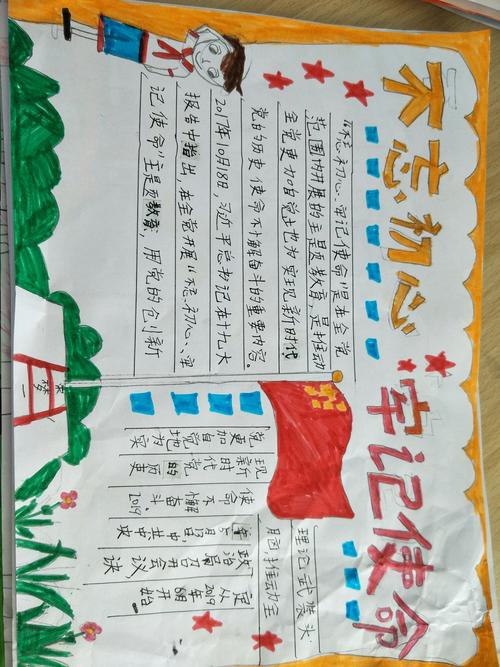 不忘初心 牢记使命
“不忘初心、牢记使命”是在全党
范围内开展的主题教育，是推动
全党更加自觉地为实现新时代
党的历史使命不懈奋斗的重要内容。
2017年10月18日，习近平总书记在十九大
报告中指出，在全党开展“不忘初心、牢
记使命”主题教育，用党的创新
理论武装头
脑，推动全
党更加自觉地为实
现新时代党的历史
使命不懈奋斗 2019
中共中央
政治局召开会议决
定从2019年6月开始